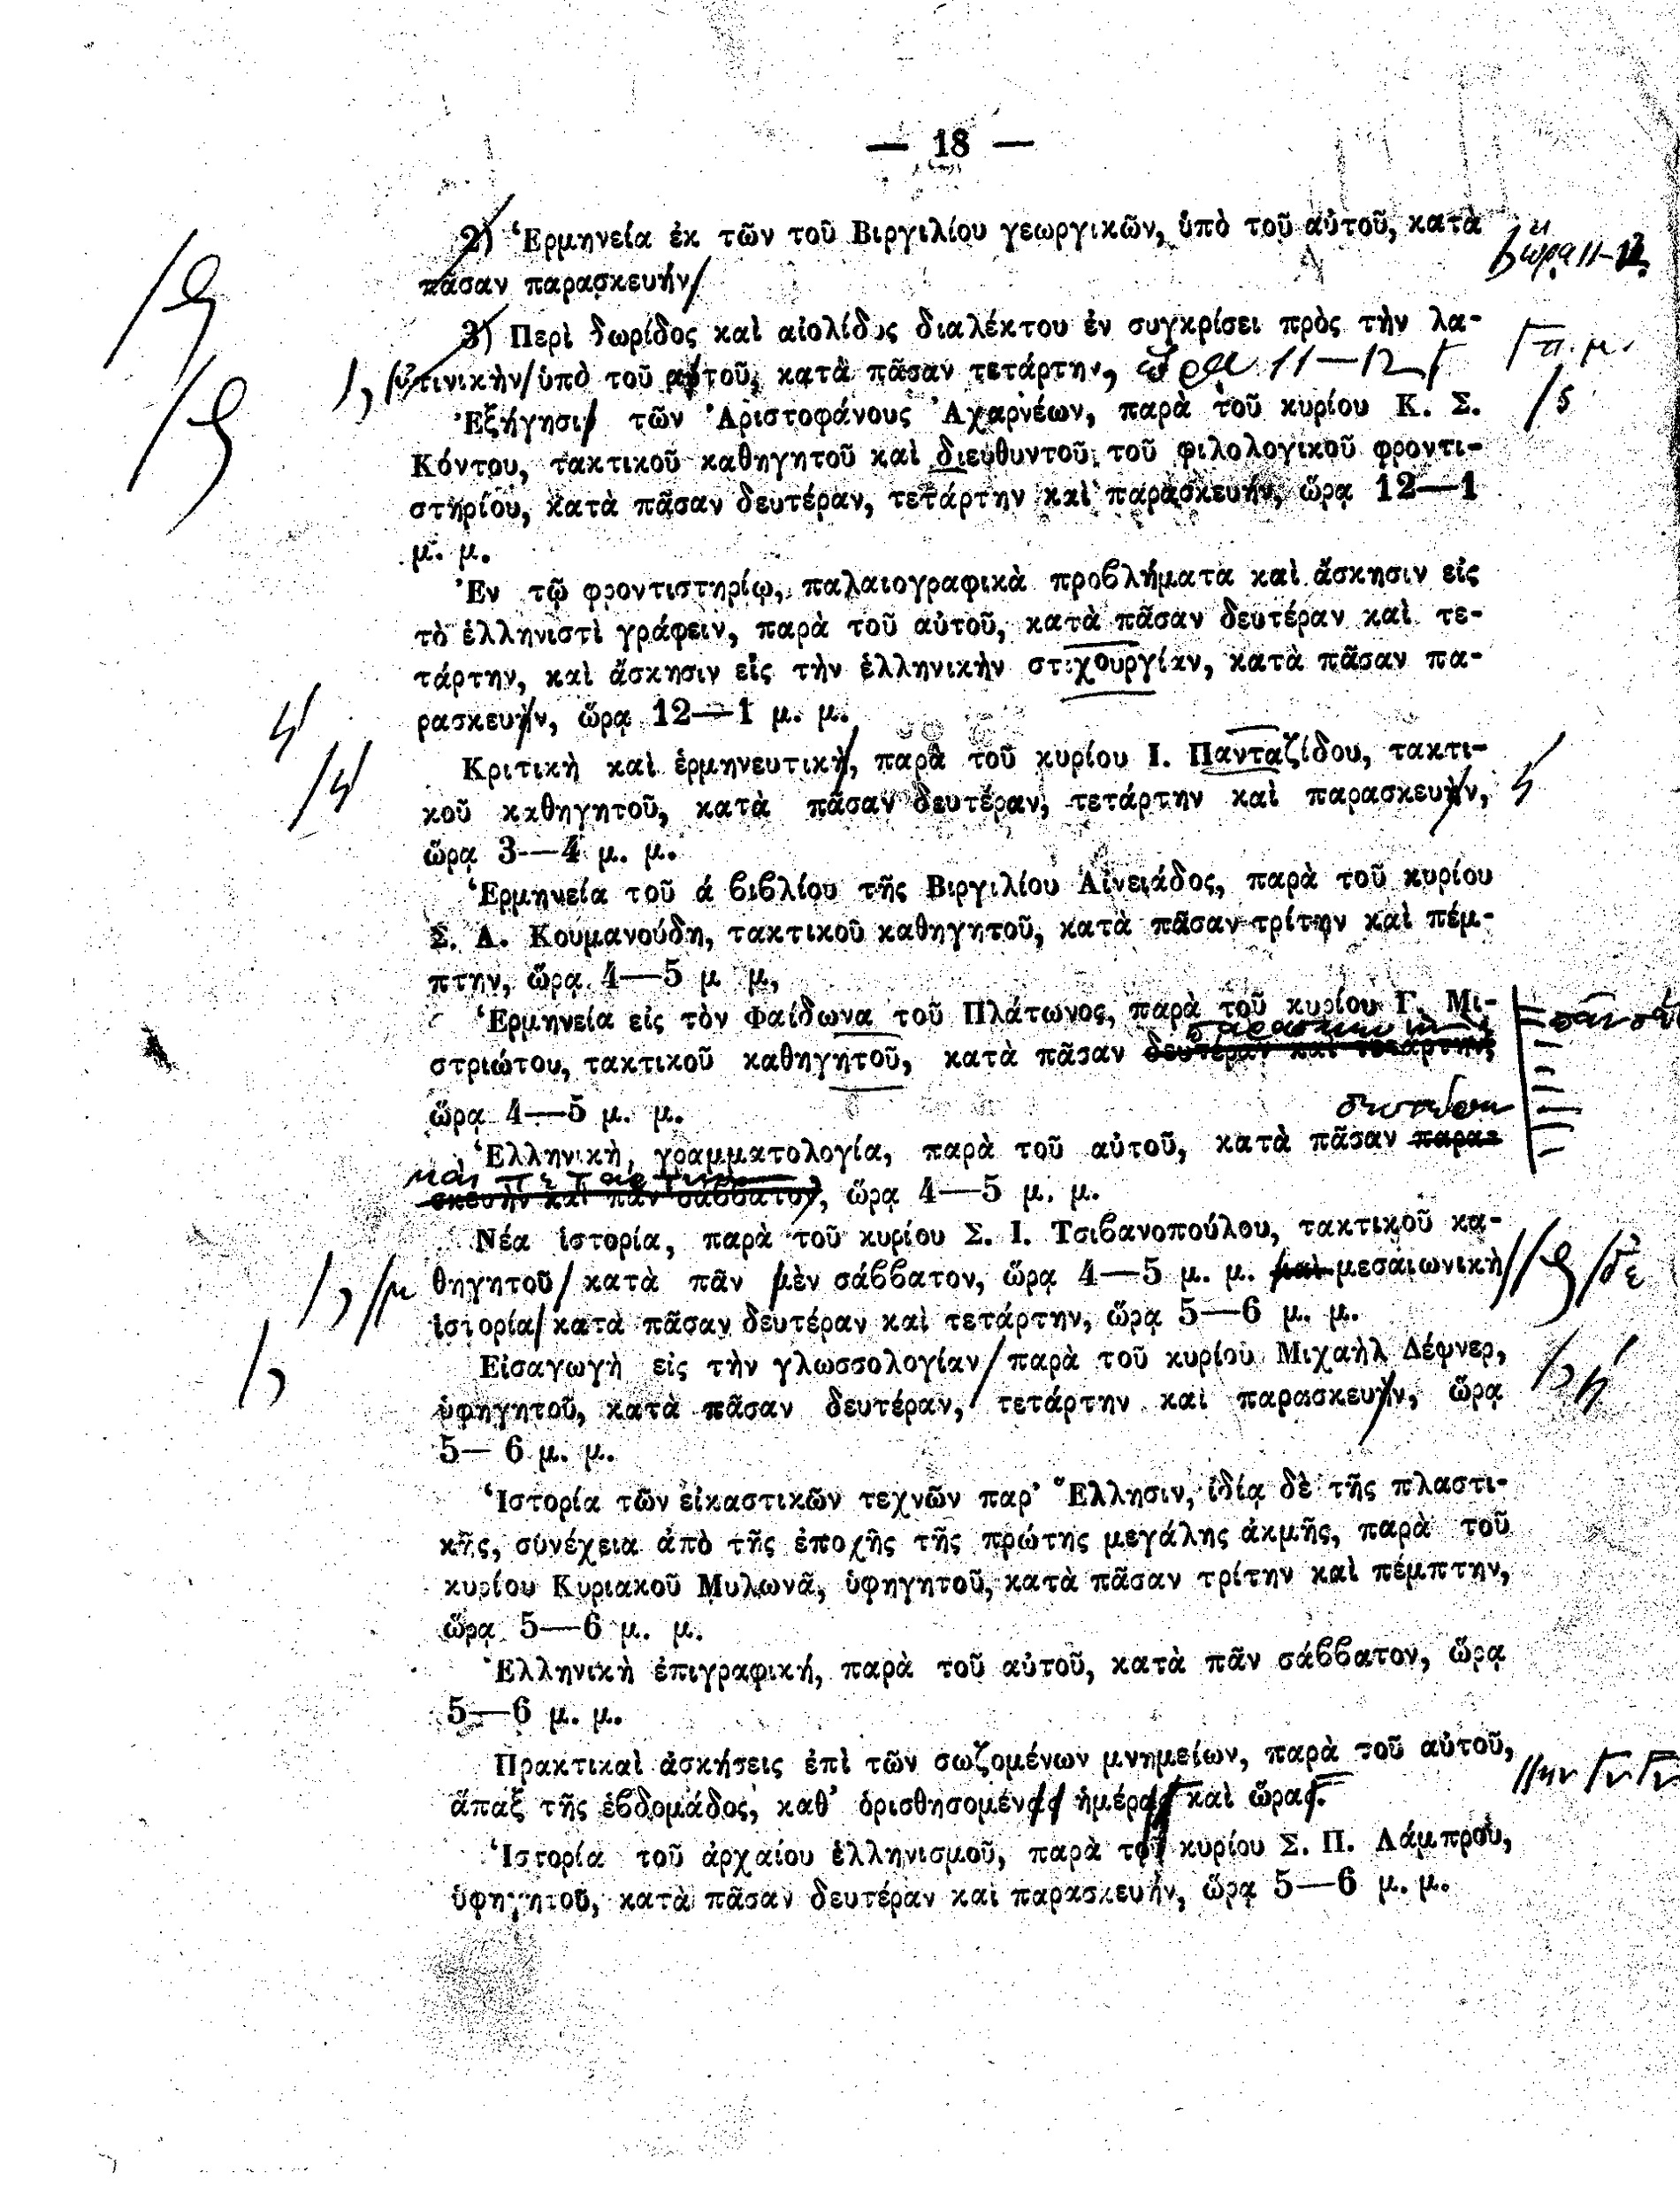 — 18 —
2) Ἑρμηνεία ἐκ τῶν τοῦ Βιργιλίου γεωργικῶν, ὑπὸ τοῦ αὐτοῦ, κατὰ
ὥρᾳ 11-12
πᾶσαν παρασκευήν
3) Περὶ δωρίδος καὶ αἰολίδος διαλέκτου ἐν συγκρίσει πρὸς τὴν λα-
π. μ.
τινικὴν ὑπὸ τοῦ αὐτοῦ, κατὰ πᾶσαν τετάρτην, ὥρᾳ 11—12
Ἐξήγησι τῶν Ἀριστοφάνους Ἀχαρνέων, παρὰ τοῦ κυρίου Κ. Σ.
Κόντου, τακτικοῦ καθηγητοῦ καὶ διευθυντοῦ τοῦ φιλολογικοῦ φροντι-
στηρίου, κατὰ πᾶσαν δευτέραν, τετάρτην καὶ παρασκευήν, ὥρᾳ 12—1
μ. μ.
Ἐν τῷ φροντιστηρίῳ, παλαιογραφικὰ προβλήματα καὶ ἄσκησιν εἰς
τὸ ἑλληνιστὶ γράφειν, παρὰ τοῦ αὐτοῦ, κατὰ πᾶσαν δευτέραν καὶ τε-
τάρτην, καὶ ἄσκησιν εἰς τὴν ἑλληνικὴν στιχουργίαν, κατὰ πᾶσαν πα-
ρασκευὴν, ὥρᾳ 12—1 μ. μ.
Κριτικὴ καὶ ἑρμηνευτικὴ, παρὰ τοῦ κυρίου Ι. Πανταζίδου, τακτι-
κοῦ καθηγητοῦ, κατὰ πᾶσαν δευτέραν, τετάρτην καὶ παρασκευὴν,
ὥρᾳ 3—4 μ. μ.
Ἑρμηνεία τοῦ ά βιβλίου τῆς Βιργιλίου Αἰνειάδος, παρὰ τοῦ κυρίου
Σ. Α. Κουμανούδη, τακτικοῦ καθηγητοῦ, κατὰ πᾶσαν τρίτην καὶ πέμ-
πτην, ὥρᾳ 4—5 μ μ,
Ἑρμηνεία εἰς τὸν Φαίδωνα τοῦ Πλάτωνος, παρὰ τοῦ κυρίου Γ. Μι-
στριώτου, τακτικοῦ καθηγητοῦ, κατὰ πᾶσαν δευτέραν καὶ τετάρτην,
ὥρᾳ 4—5 μ. μ.
δευτέραν
Ἑλληνικὴ γραμματολογία, παρὰ τοῦ αὐτοῦ, κατὰ πᾶσαν παρα-
καὶ τετάρτην
σκευὴν καὶ πᾶν σάββατον, ὥρᾳ 4—5 μ. μ.
Νέα ἱστορία, παρὰ τοῦ κυρίου Σ. Ι. Τσιβανοπούλου, τακτικοῦ κα-
θηγητοῦ κατὰ πᾶν μὲν σάββατον, ὥρᾳ 4—5 μ. μ. καὶ μεσαιωνικὴ
δὲ
ἱστορία κατὰ πᾶσαν δευτέραν καὶ τετάρτην, ὥρᾳ 5—6 μ. μ.
Εἰσαγωγὴ εἰς τὴν γλωσσολογίαν παρὰ τοῦ κυρίου Μιχαὴλ Δέφνερ,
ὑφηγητοῦ, κατὰ πᾶσαν δευτέραν, τετάρτην καὶ παρασκευὴν, ὥρᾳ
5— 6 μ. μ.
Ἱστορία τῶν εἰκαστικῶν τεχνῶν παρ' Ἕλλησιν, ἰδίᾳ δὲ τῆς πλαστι-
κῆς, συνέχεια ἀπὸ τῆς ἐποχῆς τῆς πρώτης μεγάλης ἀκμῆς, παρὰ τοῦ
κυρίου Κυριακοῦ Μυλωνᾶ, ὑφηγητοῦ, κατὰ πᾶσαν τρίτην καὶ πέμπτην,
ὥρᾳ 5—6 μ. μ.
Ἑλληνικὴ ἐπιγραφική, παρὰ τοῦ αὐτοῦ, κατὰ πᾶν σάββατον, ὥρᾳ
5—6 μ. μ.
Πρακτικαὶ ἀσκήσεις ἐπὶ τῶν σωζομένων μνημείων, παρὰ τοῦ αὐτοῦ,
ἅπαξ τῆς ἑβδομάδος, καθ' ὁρισθησομένας ἡμέρας καὶ ὥρας.
Ἱστορία τοῦ ἀρχαίου ἑλληνισμοῦ, παρὰ τοῦ κυρίου Σ. Π. Λάμπρου,
ὑφηγητοῦ, κατὰ πᾶσαν δευτέραν καὶ παρασκευήν, ὥρᾳ 5—6 μ. μ.